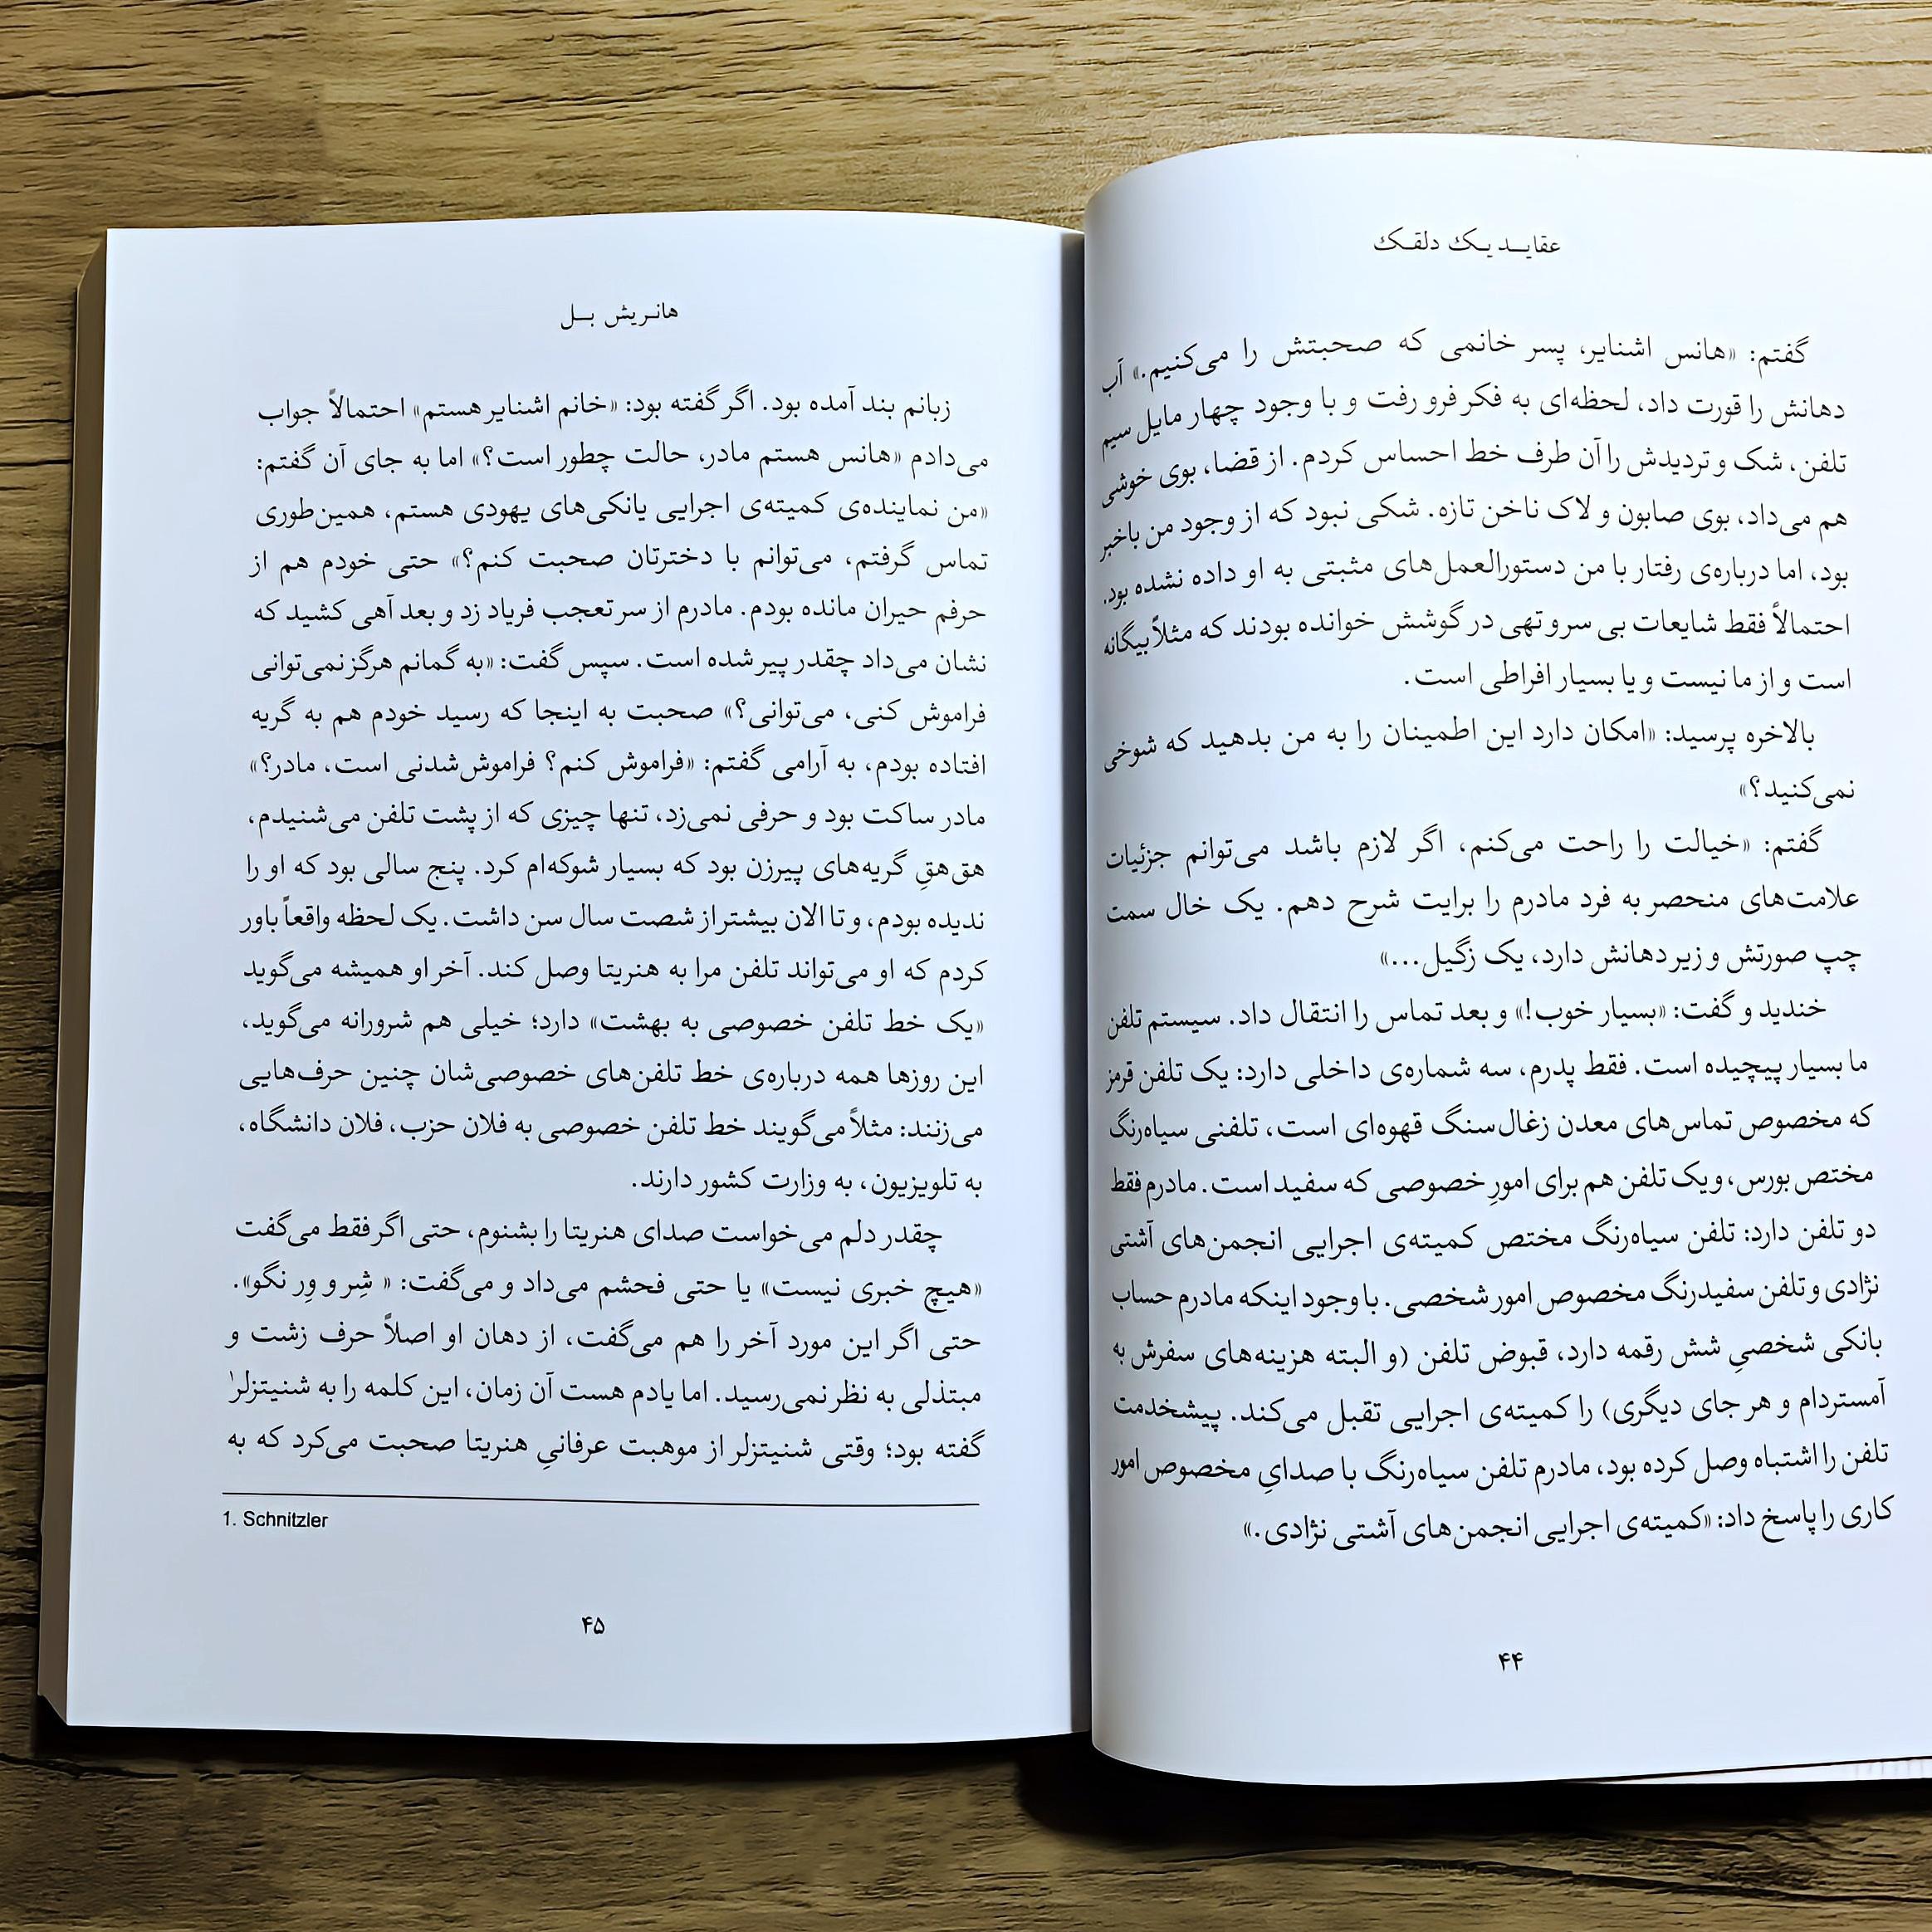 عقایـد یـک دلقـک
گفتم: «هانس اشنایر، پسر خانمی که صحبتش را می‌کنیم.» آب
دهانش را قورت داد، لحظه‌ای به فکر فرو رفت و با وجود چهار مایل سیم
تلفن، شک و تردیدش را آن طرف خط احساس کردم. از قضا، بوی خوشی
هم می‌داد، بوی صابون و لاک ناخن تازه. شکی نبود که از وجود من باخبر
بود، اما درباره‌ی رفتار با من دستورالعمل‌های مثبتی به او داده نشده بود.
احتمالاً فقط شایعات بی سر و تهی در گوشش خوانده بودند که مثلاً بیگانه
است و از ما نیست و یا بسیار افراطی است.
بالاخره پرسید: «امکان دارد این اطمینان را به من بدهید که شوخی
نمی‌کنید؟»
گفتم: «خیالت را راحت می‌کنم، اگر لازم باشد می‌توانم جزئیات
علامت‌های منحصر به فرد مادرم را برایت شرح دهم. یک خال سمت
چپ صورتش و زیر دهانش دارد، یک زگیل...»
خندید و گفت: «بسیار خوب!» و بعد تماس را انتقال داد. سیستم تلفن
ما بسیار پیچیده است. فقط پدرم، سه شماره‌ی داخلی دارد: یک تلفن قرمز
که مخصوص تماس‌های معدن زغال‌سنگ قهوه‌ای است، تلفنی سیاه‌رنگ
مختص بورس، و یک تلفن هم برای امورِ خصوصی که سفید است. مادرم فقط
دو تلفن دارد: تلفن سیاه‌رنگ مختص کمیته‌ی اجرایی انجمن‌های آشتی
نژادی و تلفن سفیدرنگ مخصوص امور شخصی. با وجود اینکه مادرم حساب
بانکی شخصیِ شش رقمه دارد، قبوض تلفن (و البته هزینه‌های سفرش به
آمستردام و هر جای دیگری) را کمیته‌ی اجرایی تقبل می‌کند. پیشخدمت
تلفن را اشتباه وصل کرده بود، مادرم تلفن سیاه‌رنگ با صدایِ مخصوص امور
کاری را پاسخ داد: «کمیته‌ی اجرایی انجمن‌های آشتی نژادی.»
۴۴
هانـریش بـل
زبانم بند آمده بود. اگر گفته بود: «خانم اشنایر هستم» احتمالاً جواب
می‌دادم «هانس هستم مادر، حالت چطور است؟» اما به جای آن گفتم:
«من نماینده‌ی کمیته‌ی اجرایی یانکی‌های یهودی هستم، همین‌طوری
تماس گرفتم، می‌توانم با دخترتان صحبت کنم؟» حتی خودم هم از
حرفم حیران مانده بودم. مادرم از سر تعجب فریاد زد و بعد آهی کشید که
نشان می‌داد چقدر پیر شده است. سپس گفت: «به گمانم هرگز نمی‌توانی
فراموش کنی، می‌توانی؟» صحبت به اینجا که رسید خودم هم به گریه
افتاده بودم، به آرامی گفتم: «فراموش کنم؟ فراموش‌شدنی است، مادر؟»
مادر ساکت بود و حرفی نمی‌زد، تنها چیزی که از پشت تلفن می‌شنیدم،
هق‌هقِ گریه‌های پیرزن بود که بسیار شوکه‌ام کرد. پنج سالی بود که او را
ندیده بودم، و تا الان بیشتر از شصت سال سن داشت. یک لحظه واقعاً باور
کردم که او می‌تواند تلفن مرا به هنریتا وصل کند. آخر او همیشه می‌گوید
«یک خط تلفن خصوصی به بهشت» دارد؛ خیلی هم شرورانه می‌گوید،
این روزها همه درباره‌ی خط تلفن‌های خصوصی‌شان چنین حرف‌هایی
می‌زنند: مثلاً می‌گویند خط تلفن خصوصی به فلان حزب، فلان دانشگاه،
به تلویزیون، به وزارت کشور دارند.
چقدر دلم می‌خواست صدای هنریتا را بشنوم، حتی اگر فقط می‌گفت
«هیچ خبری نیست» یا حتی فحشم می‌داد و می‌گفت: « شِر و وِر نگو».
حتی اگر این مورد آخر را هم می‌گفت، از دهان او اصلاً حرف زشت و
مبتذلی به نظر نمی‌رسید. اما یادم هست آن زمان، این کلمه را به شنیتزلر۱
گفته بود؛ وقتی شنیتزلر از موهبت عرفانیِ هنریتا صحبت می‌کرد که به
1. Schnitzler
۴۵